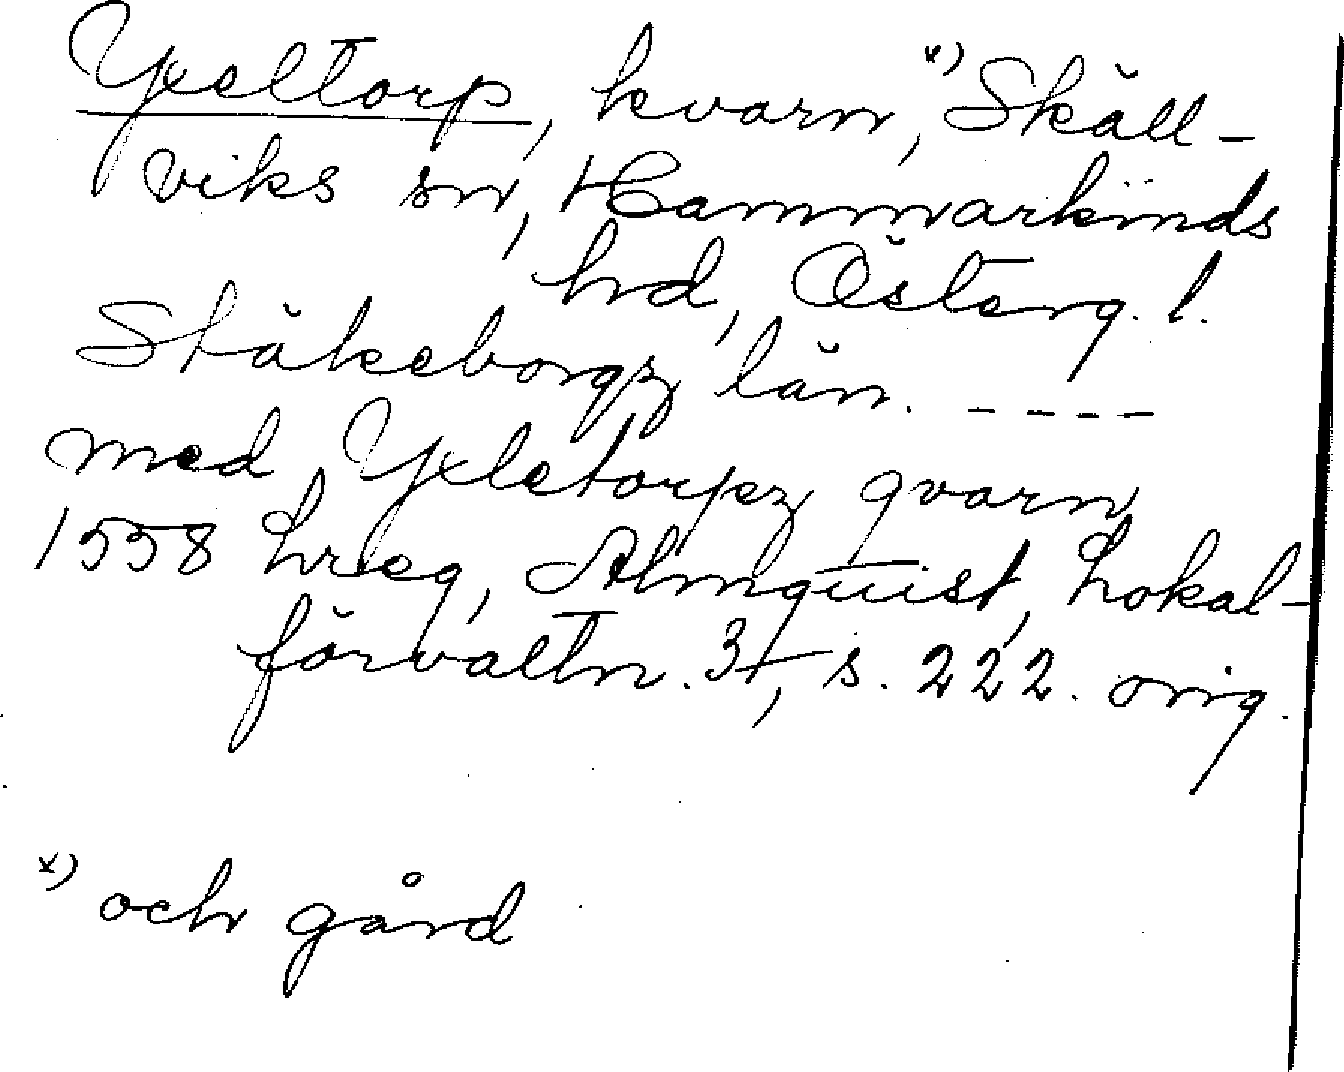 Yxeltorp, kvarn, x) Skäll-
viks sn, Hammarkinds
hd, Österg. l.
Stäkeborgz län. - - - -
med Yxletorpz qvarn
1558 Lreg, Almquist, Lokal-
förvaltn. 3, s. 222. orig.
x) och gård